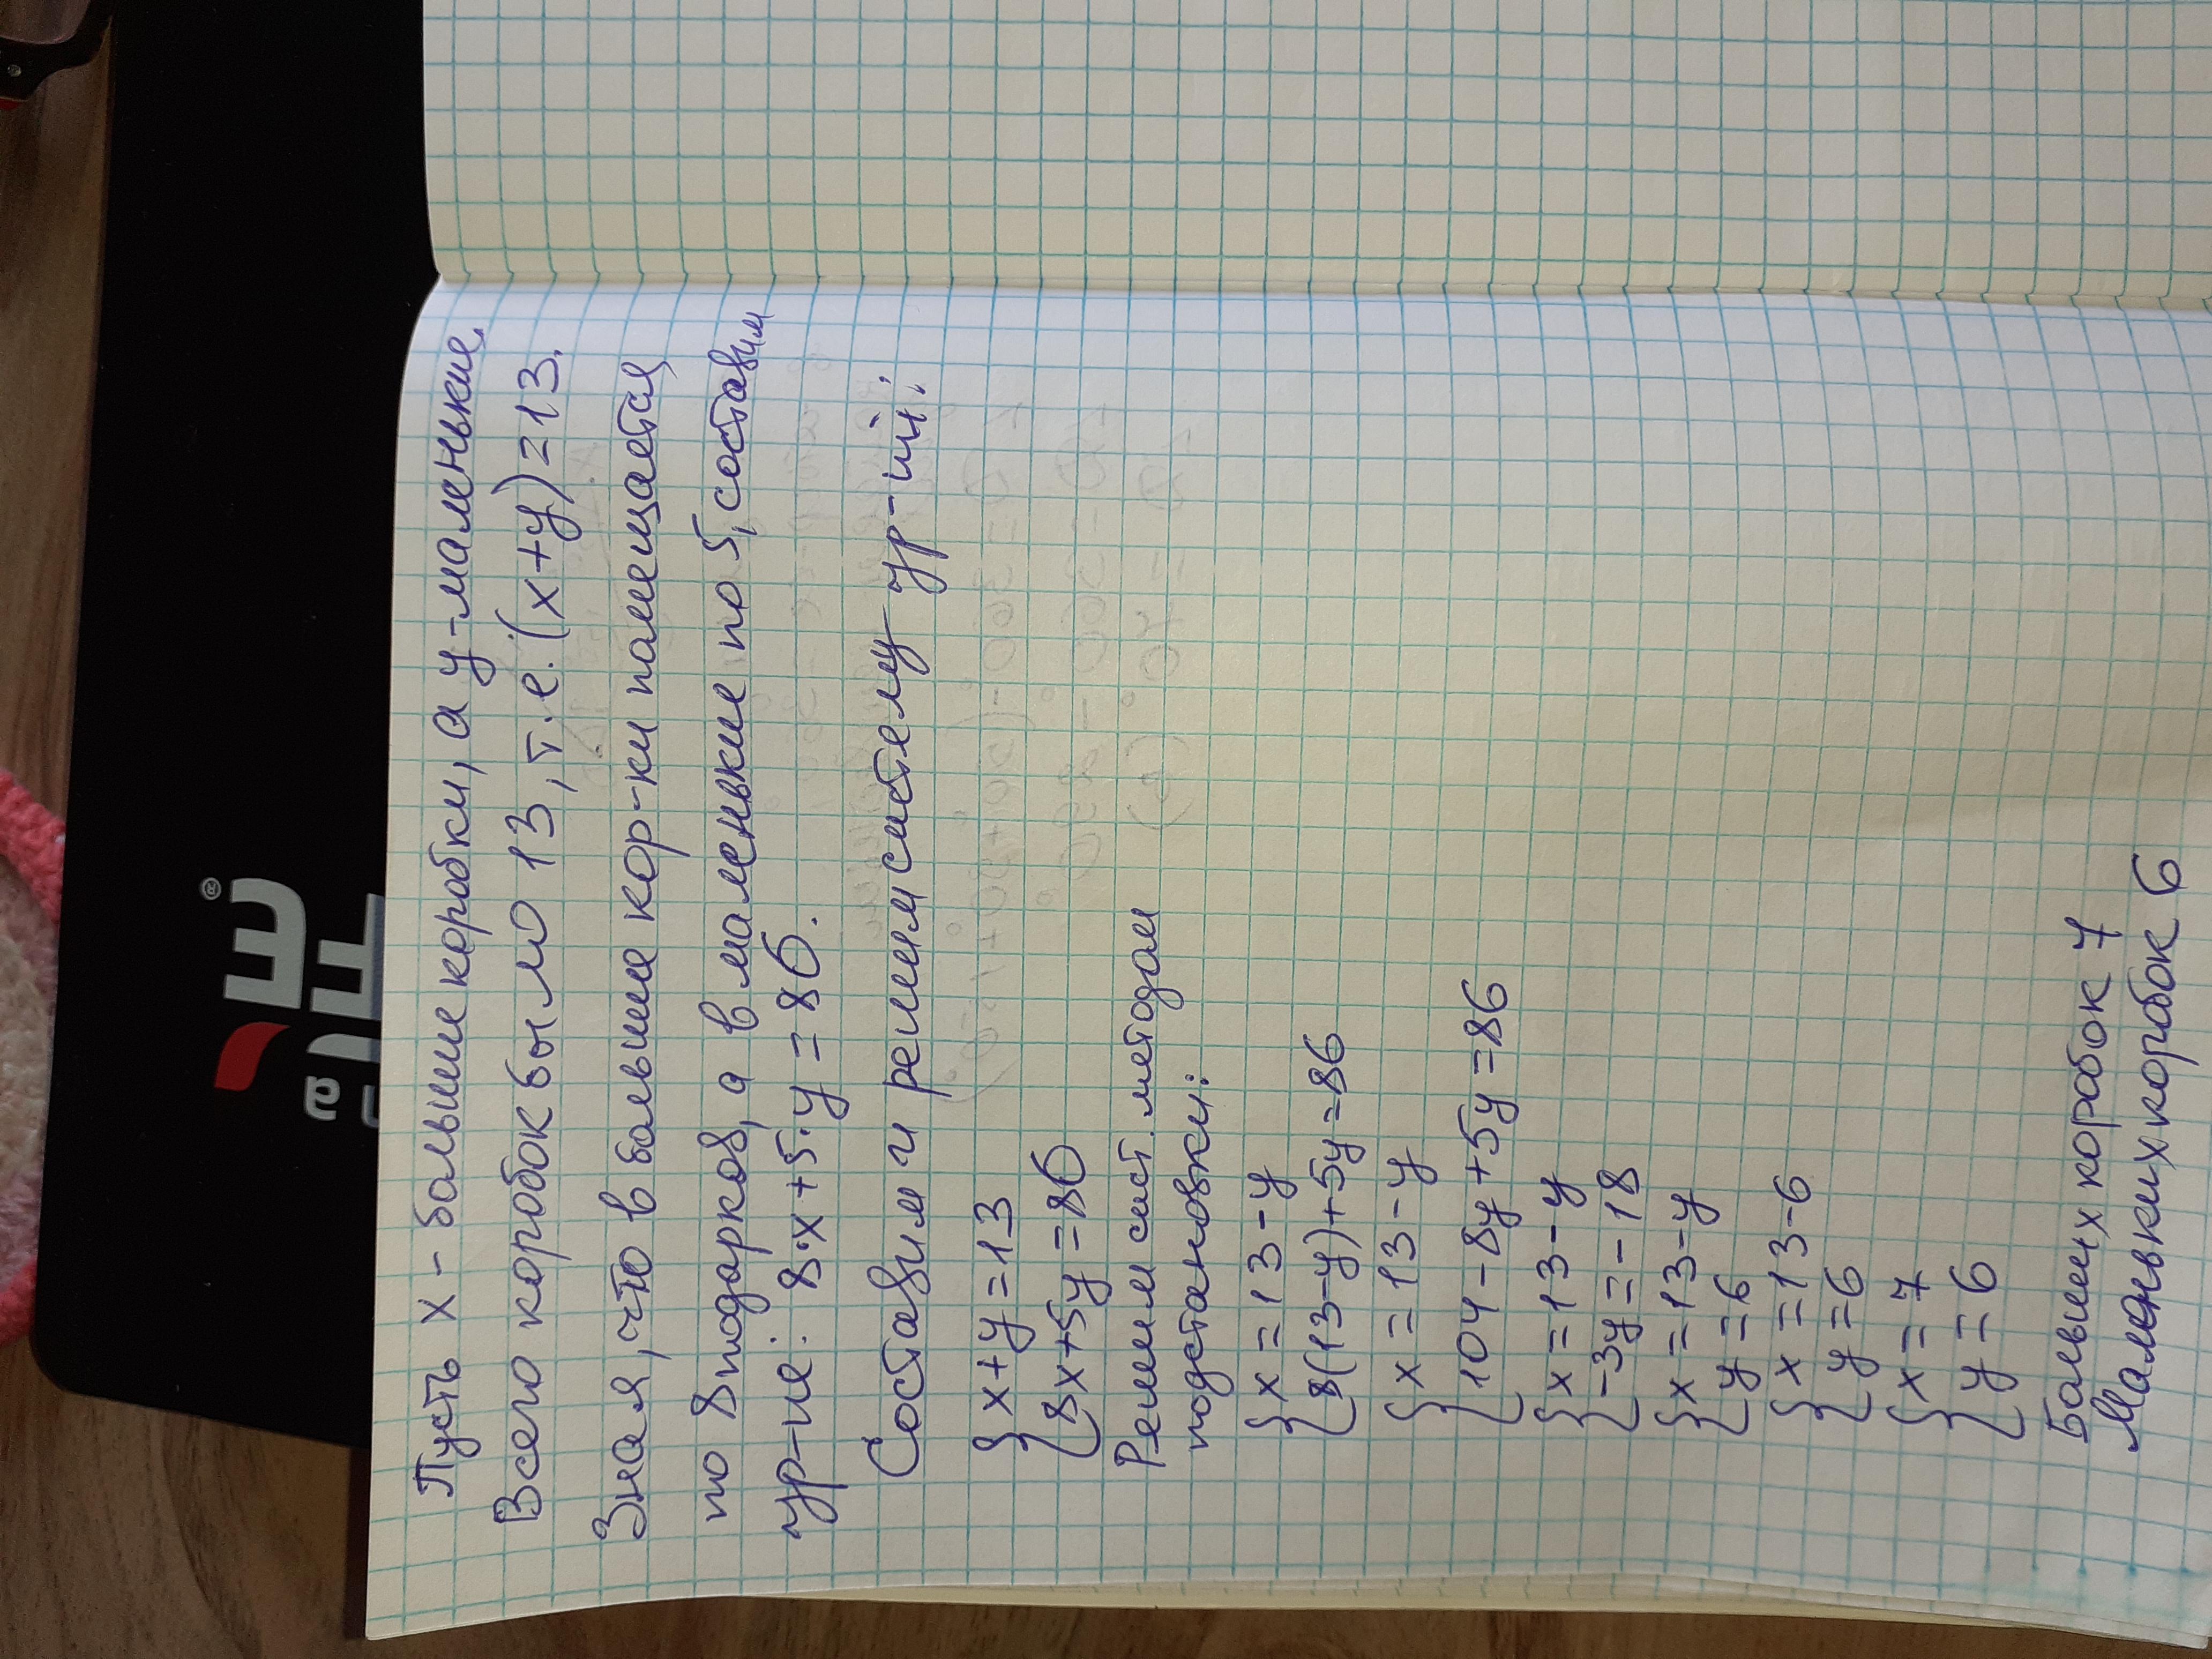 Пусть х - большие коробки, а у - маленькие.
Всего коробок было 13, т.е. (х+у)=13.
Зная, что в большие кор-ки помещается
по 8 подарков, а в маленькие по 5, составим
ур-ие: 8·х+5·у=86.
Составим и решим систему ур-ий:
{х+у=13
{8х+5у=86
Решим сист. методом
подстановки:
{х=13-у
{8(13-у)+5у=86
{х=13-у
{104-8у+5у=86
{х=13-у
{-3у=-18
{х=13-у
{у=6
{х=13-6
{у=6
{х=7
{у=6
Больших коробок 7
Маленьких коробок 6